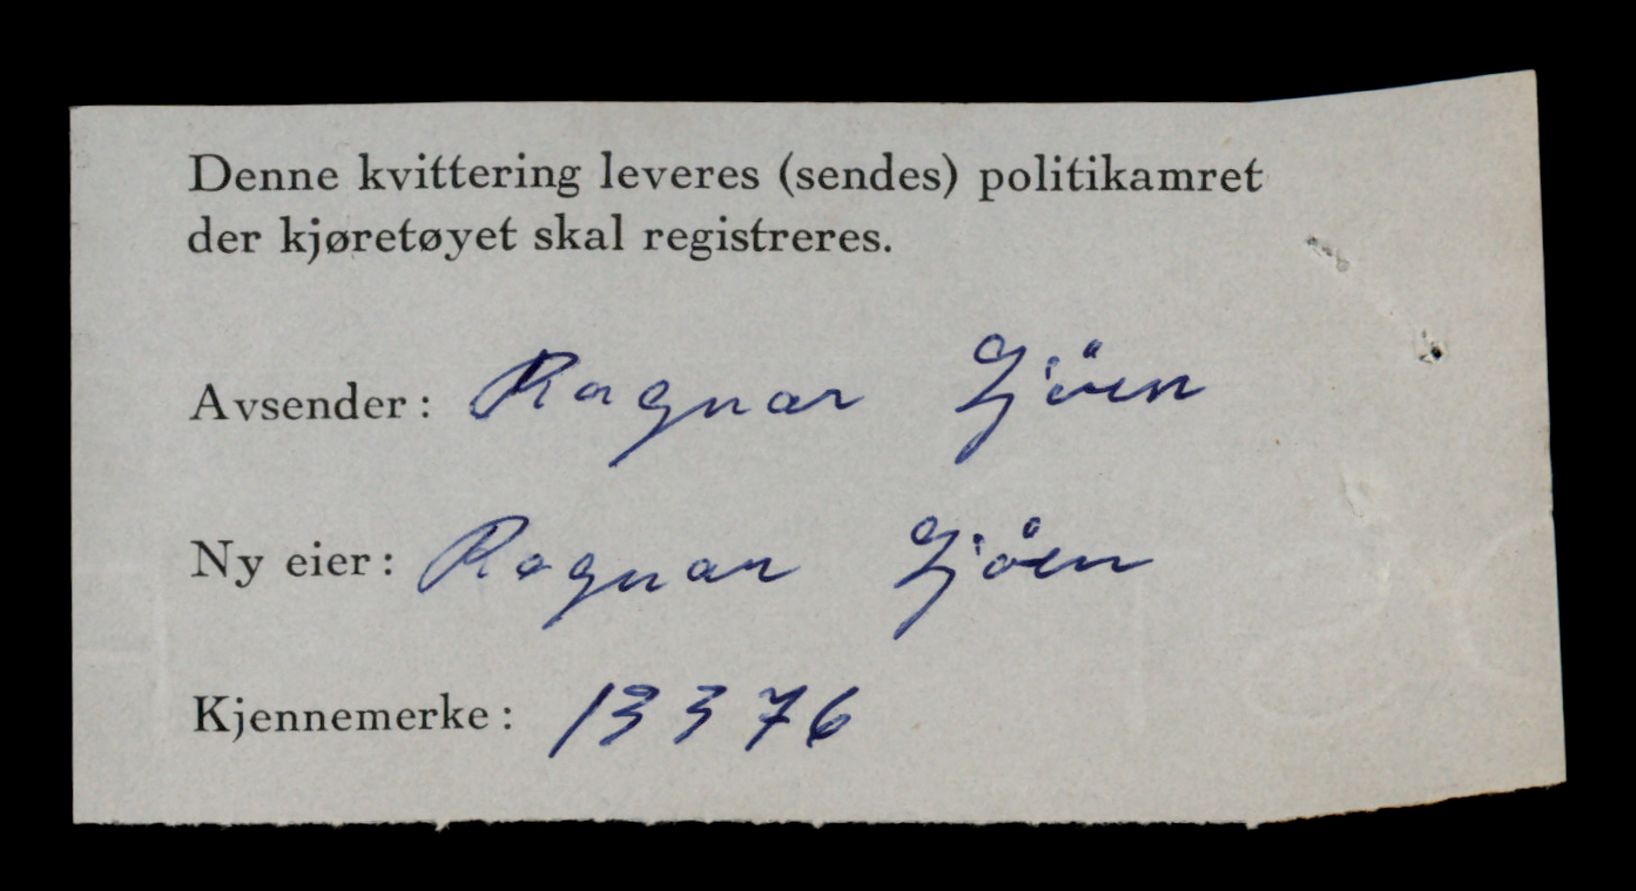 Denne kvittering leveres (sendes) politikamret
der kjøretøyet skal registreres.
Avsender: Ragnar Gjöen
Ny eier: Ragnar Gjöen
Kjennemerke: 13376